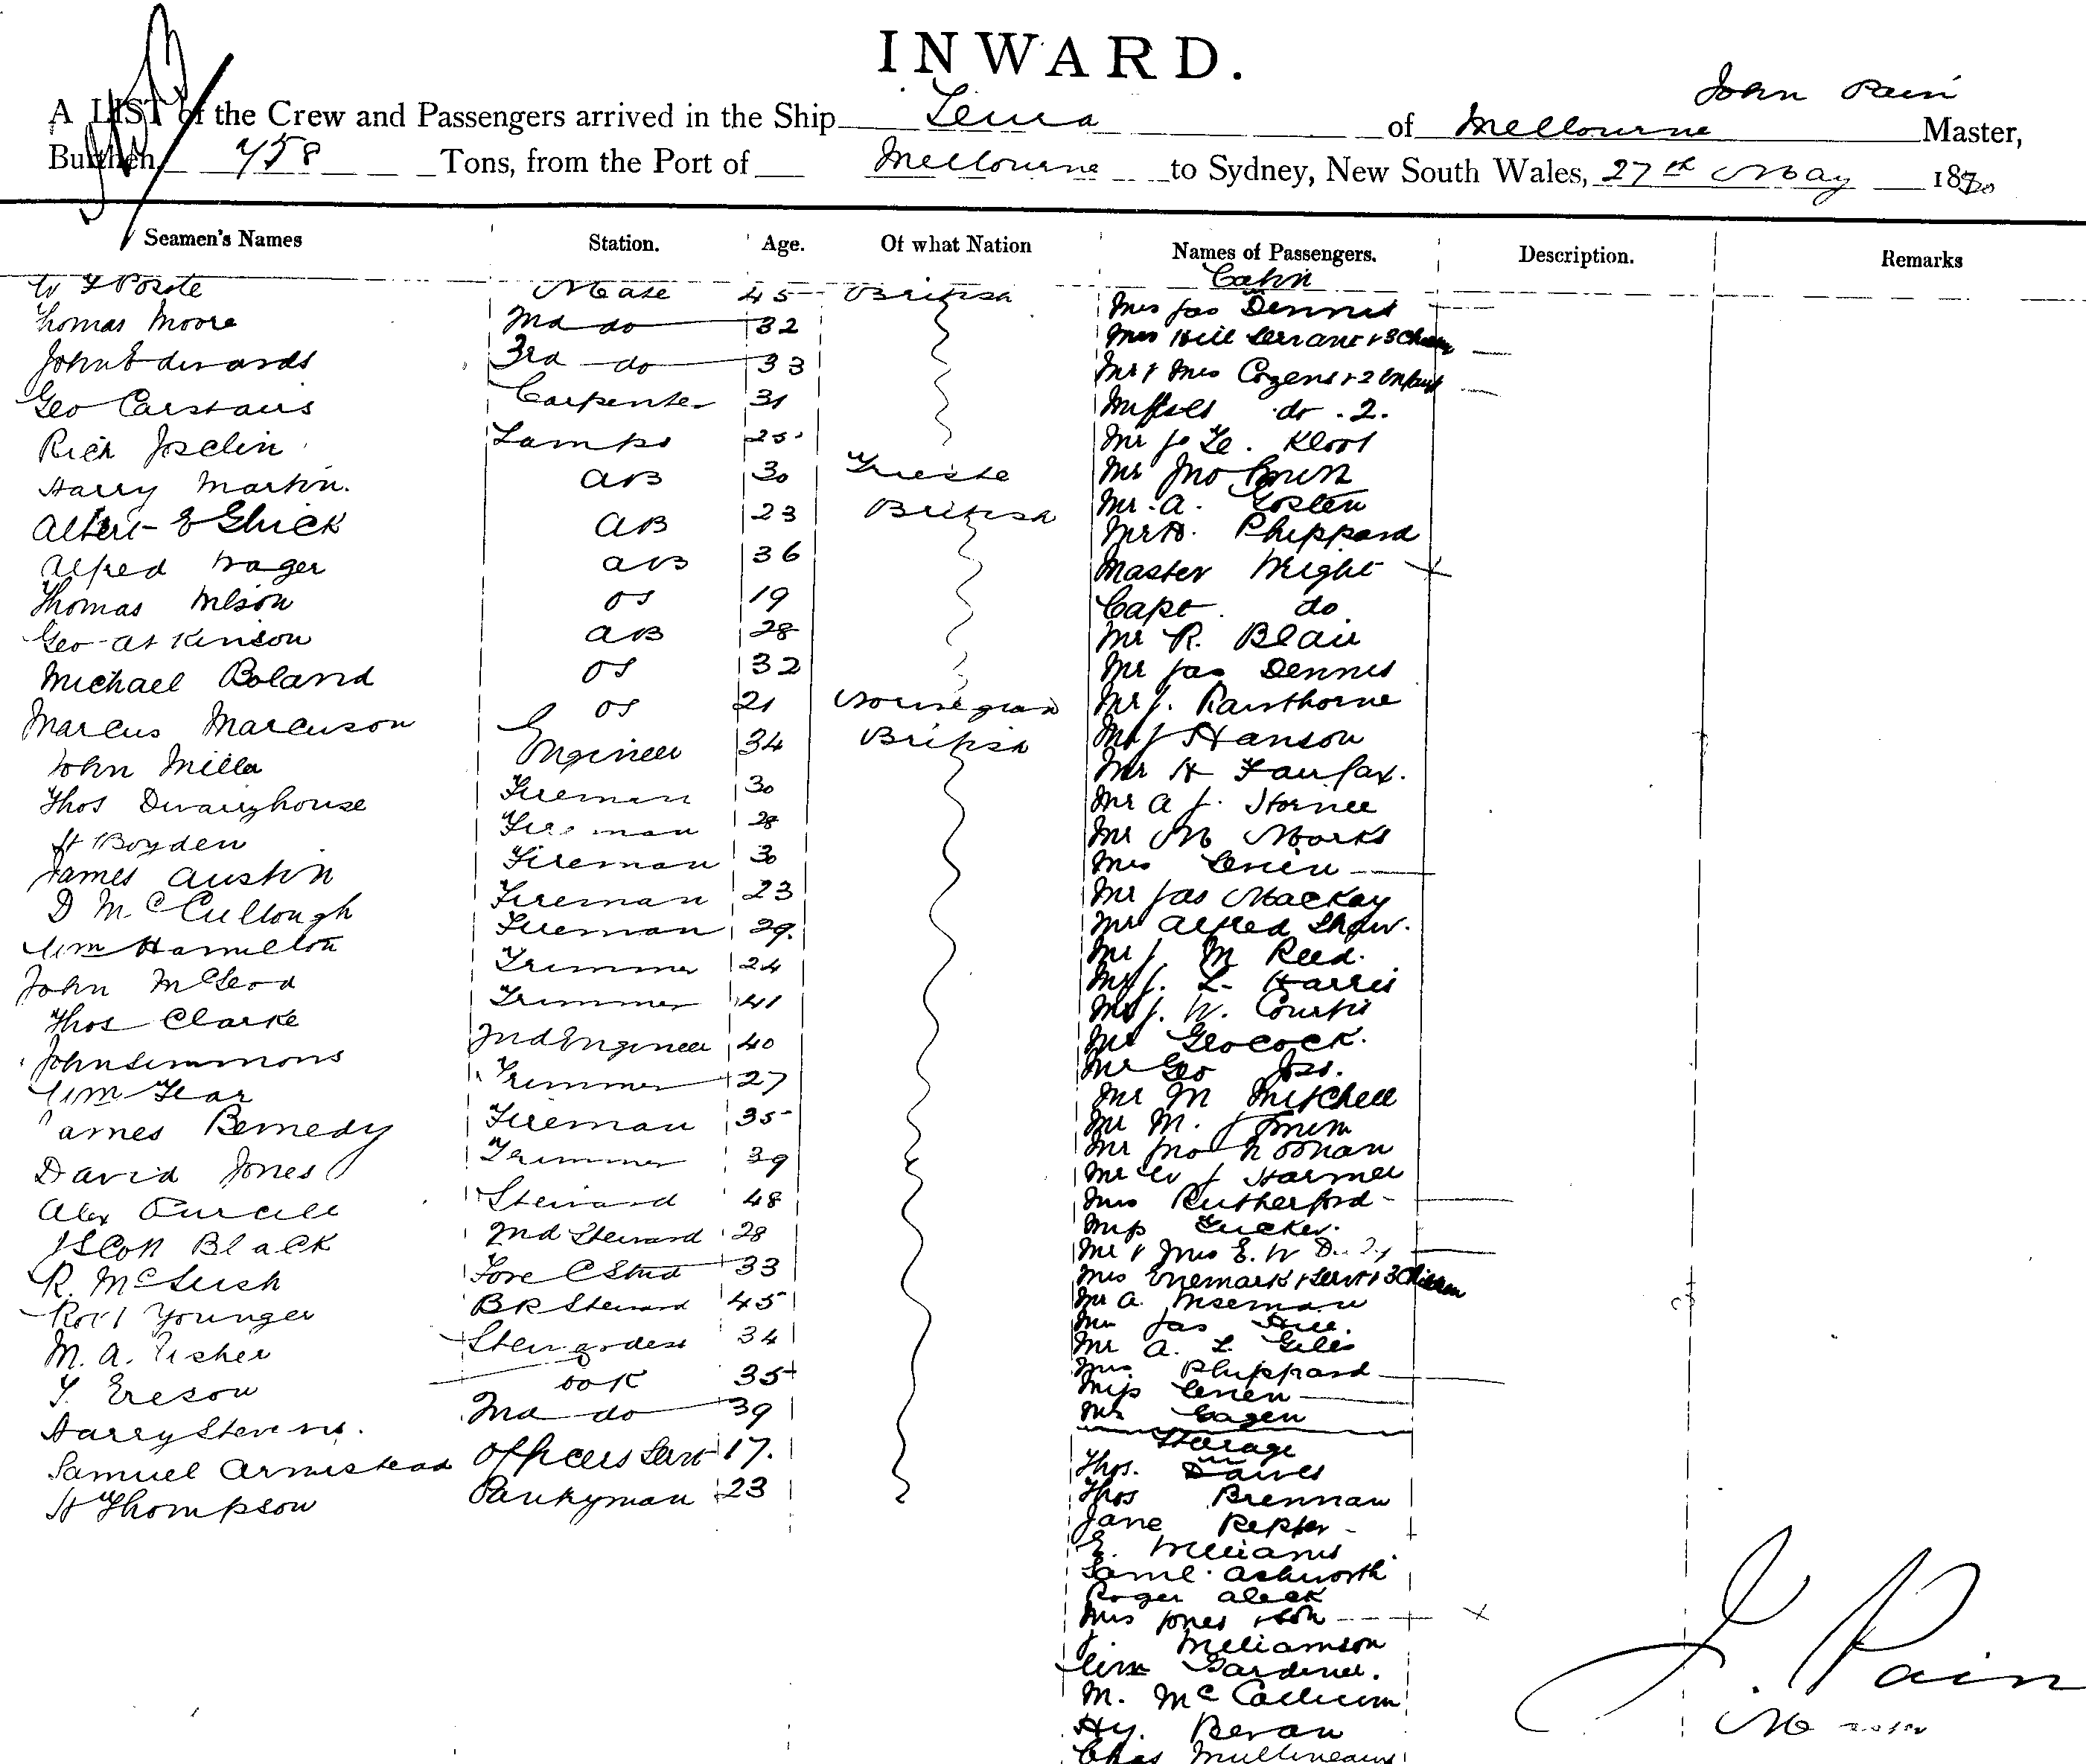 INWARD.
John Pain
A LIST of the Crew and Passengers arrived in the Ship of Melbourne Master,
Burthen 758 Tons, from the Port of Melbourne to Sydney, New South Wales, 27th May 1880
Seamen's Names Station. Age. Of what Nation Names of Passengers. Description. Remarks
Cabin
W Mate 45 British Mrs Jas Dennis
Thomas Moore 2nd do 32 Mrs Hill Servant & 3 Children
John Edwards 3rd do 33 Mr & Mrs Cozens & 2 Infants
Geo Carstairs Carpenter 31 Misses do . 2.
Rich Joselin Lamps 25 Mr Jo Le. Kloot
Harry Martin. AB 30 Trieste Mr Jno
Albert E Ghick AB 23 British Mr. A.
Alfred Wager AB 36 Mr H. Phippard
Thomas Wilson OS 19 Master Wright
Geo Atkinson AB 28 Capt do
Michael Boland OS 32 Mr R. Blair
Marcus Marcuson OS 21 Norwegian Mr Jas Dennis
John Miller Engineer 34 British Mr J. Rawthorne
Thos Dwarryhouse Fireman 30 Mr J Hanson
H Boyden Fireman 28 Mr H Fairfax.
James Austin Fireman 30 Mr A J.
D McCullough Fireman 23 Mr M Marks
Wm Hamilton Fireman 29. Mrs
John McLeod Trimmer 24 Mr Jas Mackay
Thos Clarke Trimmer 41 Mr Alfred Shaw.
John Simmons 2nd Engineer 40 Mr J. M Reed.
Wm Trimmer 27 Mr J. L. Harris
James Fireman 35 Mr J. W. Curtis
David Jones Trimmer 39 Mr
Alex Purcell Steward 48 Mr Geo
J Scott Black 2nd Steward 28 Mr M Mitchell
R. McLeish Fore C Stwd 33 Mr M.
Robt Younger BR Steward 45 Mr Jno Noonan
M. A. Fisher Stewardess 34 Mr W J
T. Ereson Cook 35 Mrs Rutherford
Harry Stevens. 2nd do 39 Miss Tucker.
Samuel Armistead Officers Servt 17. Mr & Mrs E. W
H Thompson Pantryman 23 Mrs Enemark & Servt & 3 Children
Mr A. Wiseman
Mr Jas Hill.
Mr A. L. Giles
Mrs. Phippard
Miss
Mr
Steerage
Thos. Dawes
Thos Brennan
Jane
E. Williams
Saml. Ashworth
Roger
Mrs Jones & Son
J. Williamson
Wm Gardiner.
M. McCallum
Hy. Bevan
Chas Mullineaux
J. Pain
Master